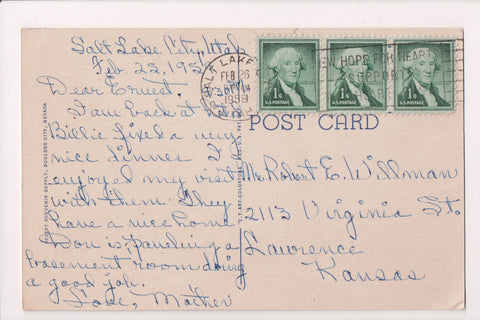 Salt Lake City, Utah
Feb 25, 1959
Dear Ernest,
I am back at
Billie fixed a very
nice dinner. I
enjoyed my visit
with them. They
have a nice home.
Don is paneling a
basement room doing
a good job.
Love, Mother
SALT LAKE
FEB 26
1959
HOPE FOR HEART
SUPPORT
1¢
U.S. POSTAGE
1¢
U.S. POSTAGE
1¢
U.S. POSTAGE
POST CARD
Mr. Robert E. Willman
2113 Virginia St.
Lawrence
Kansas
SOUVENIR SUPPLY, BOULDER CITY, NEVADA